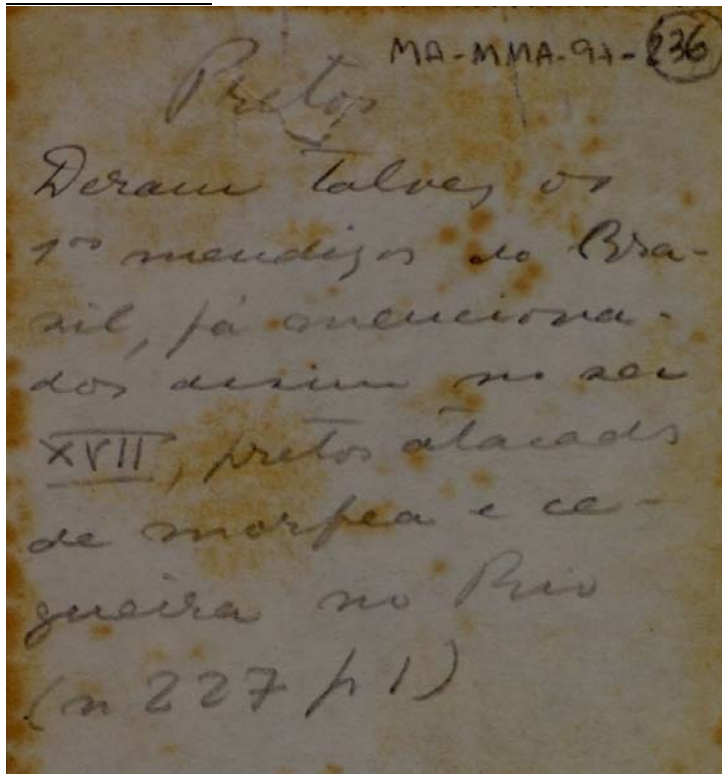 MA-MMA-97-236
Pretos
Deram talvez os
1os mendigos do Bra-
sil, já menciona-
dos assim no sec
XVII, pretos atacados
de morfea e ce-
gueira no Rio
(n 227 p 1)